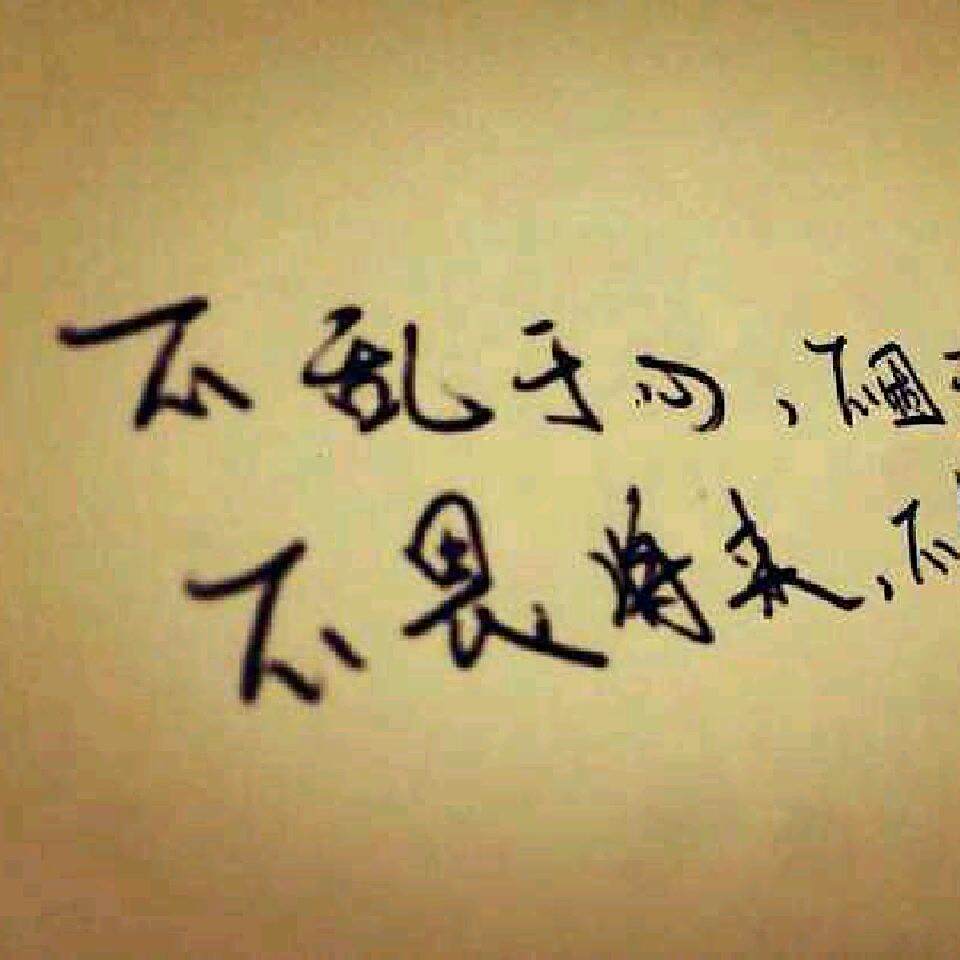 不乱于心，不困
不畏将来，不